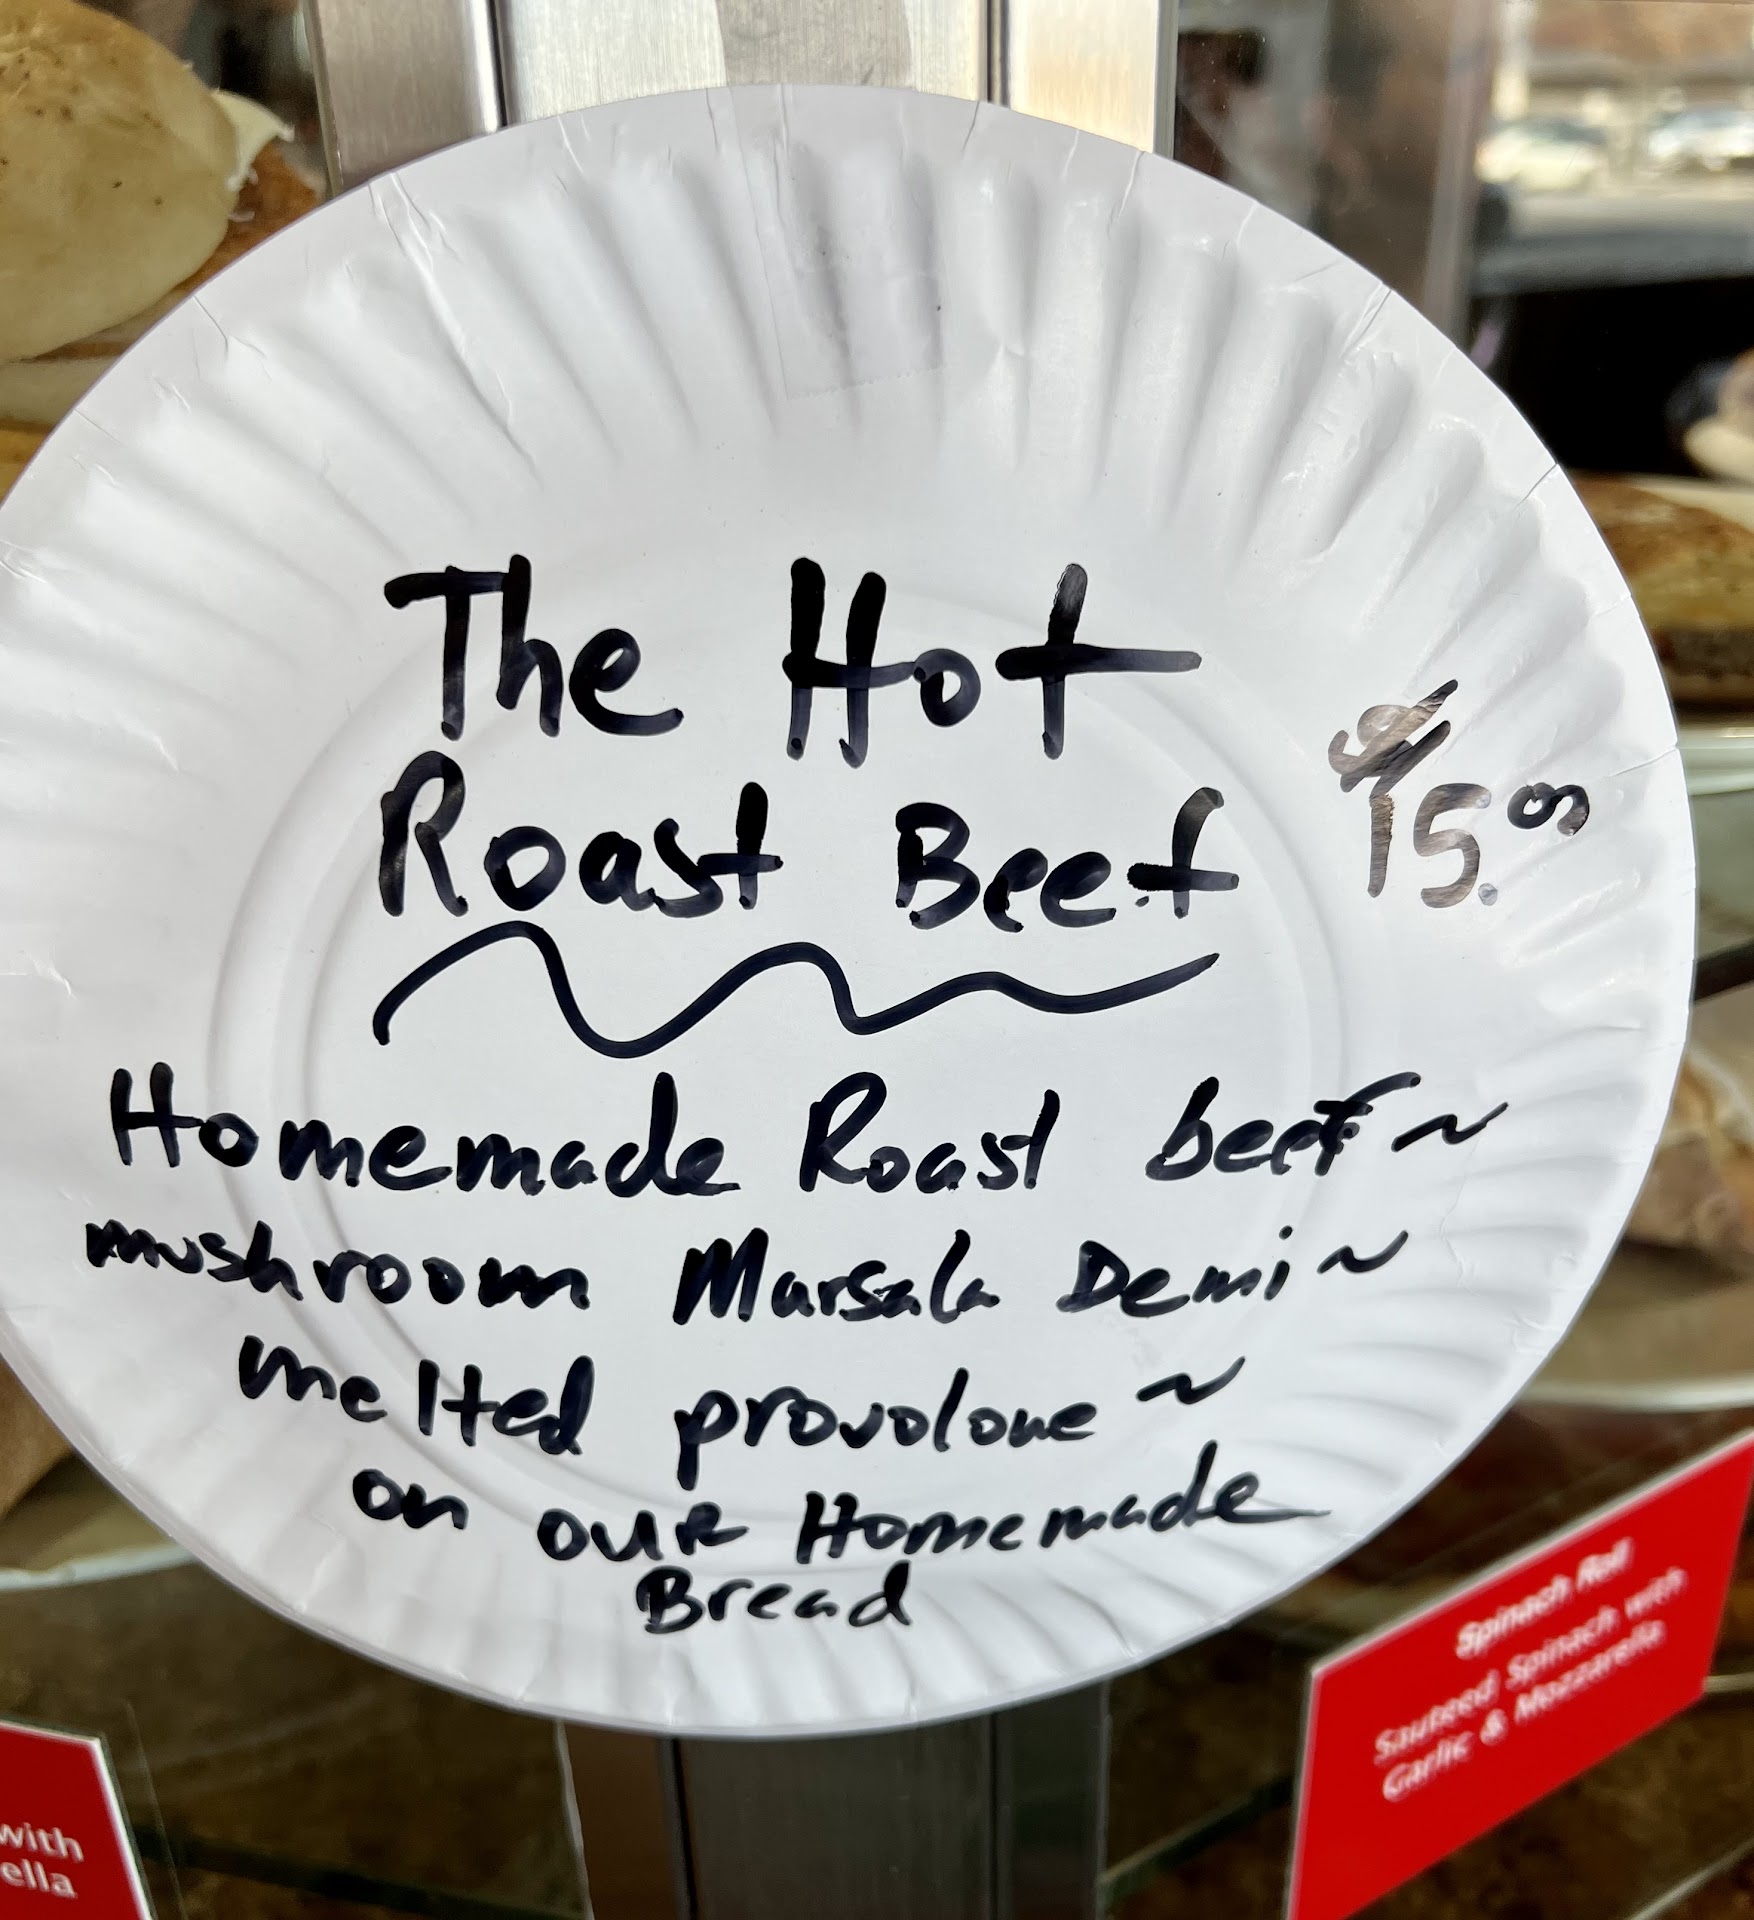 The Hot
Roast Beef
$15.00
Homemade Roast beef ~
mushroom Marsala Demi ~
melted provolone ~
on our Homemade
Bread
Spinach Roll
Sauteed Spinach with
Garlic & Mozzarella
with
ella